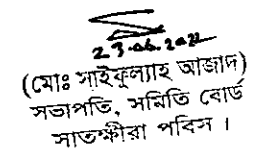 23.06.2022
(মোঃ সাইফুল্যাহ আজাদ)
সভাপতি, সমিতি বোর্ড
সাতক্ষীরা পবিস ।